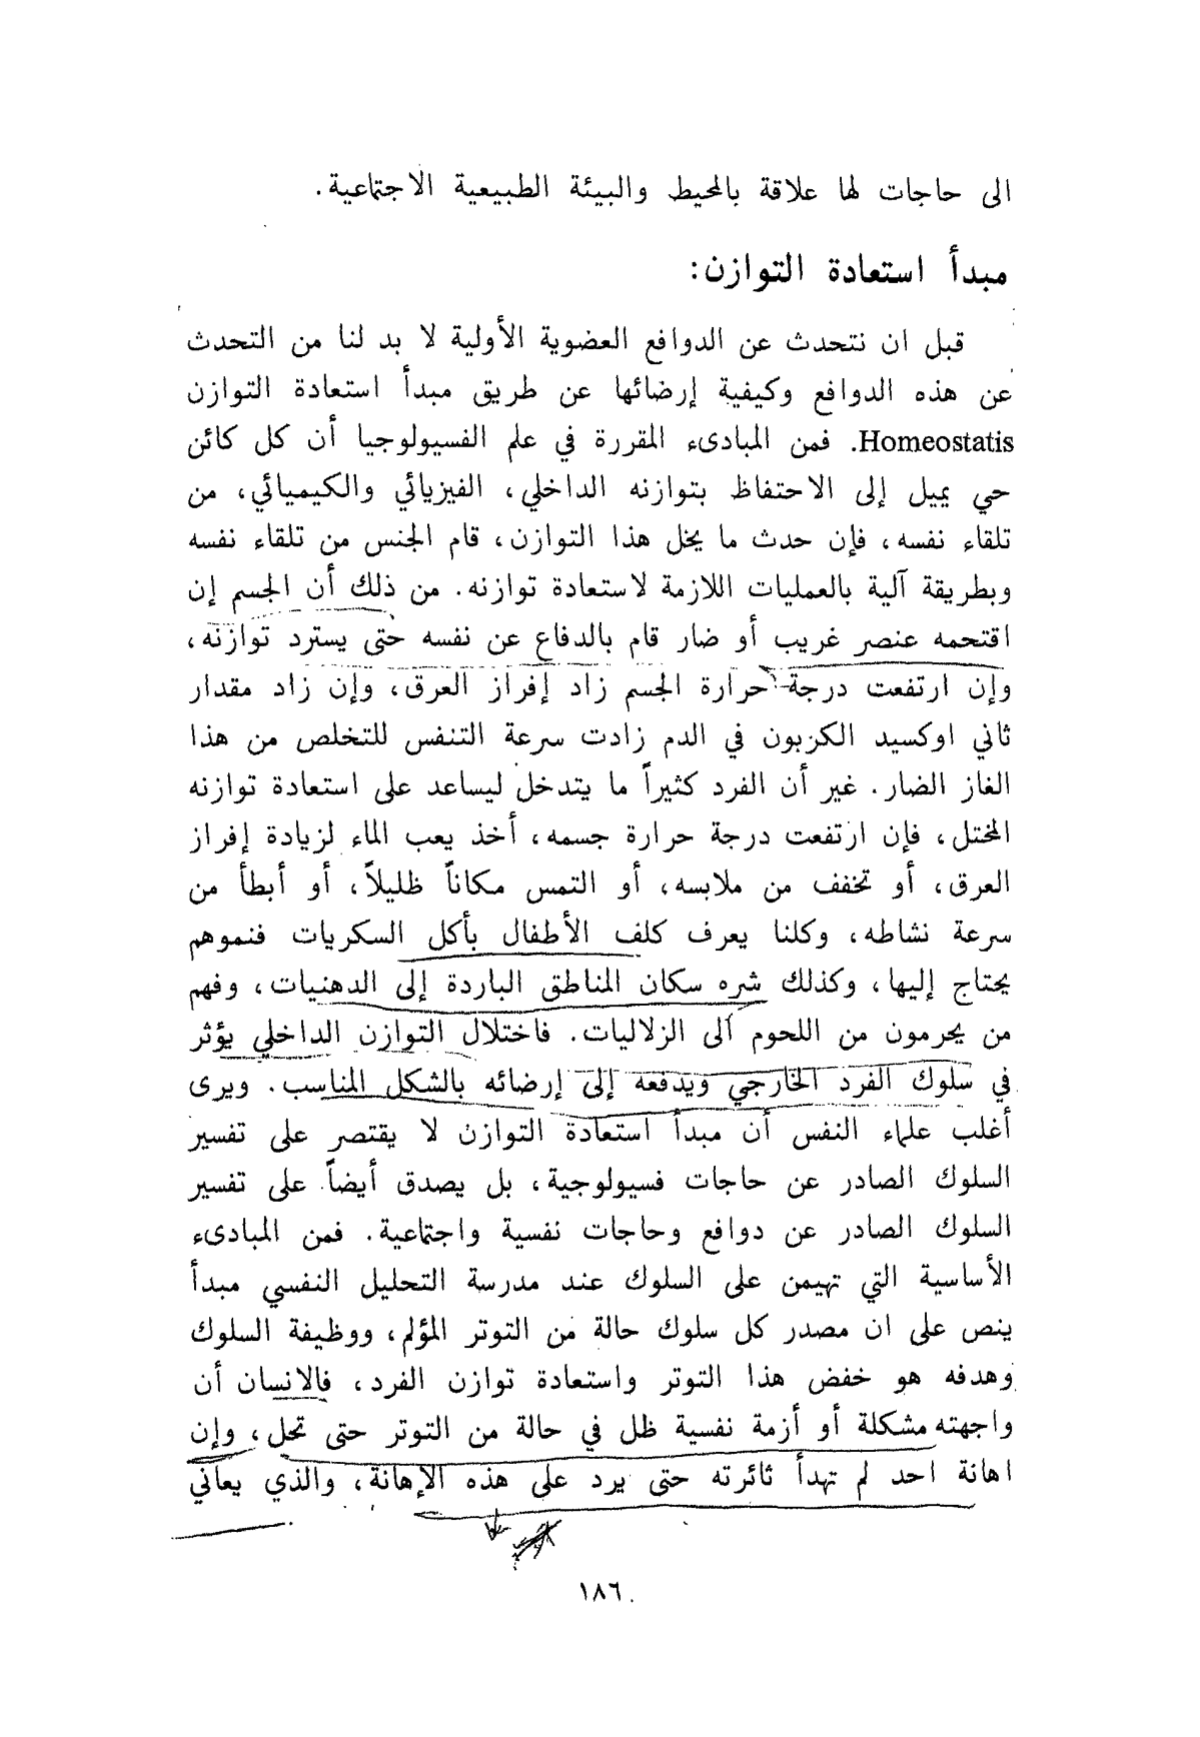 الى حاجات لها علاقة بالمحيط والبيئة الطبيعية الاجتماعية.
مبدأ استعادة التوازن:
قبل ان نتحدث عن الدوافع العضوية الأولية لا بد لنا من التحدث
عن هذه الدوافع وكيفية إرضائها عن طريق مبدأ استعادة التوازن
Homeostatis. فمن المبادىء المقررة في علم الفسيولوجيا أن كل كائن
حي يميل إلى الاحتفاظ بتوازنه الداخلي، الفيزيائي والكيميائي، من
تلقاء نفسه، فإن حدث ما يخل هذا التوازن، قام الجنس من تلقاء نفسه
وبطريقة آلية بالعمليات اللازمة لاستعادة توازنه. من ذلك أن الجسم إن
اقتحمه عنصر غريب أو ضار قام بالدفاع عن نفسه حتى يسترد توازنه،
وإن ارتفعت درجة حرارة الجسم زاد إفراز العرق، وإن زاد مقدار
ثاني اوكسيد الكربون في الدم زادت سرعة التنفس للتخلص من هذا
الغاز الضار. غير أن الفرد كثيراً ما يتدخل ليساعد على استعادة توازنه
المختل، فإن ارتفعت درجة حرارة جسمه، أخذ يعب الماء لزيادة إفراز
العرق، أو تخفف من ملابسه، أو التمس مكاناً ظليلاً، أو أبطأ من
سرعة نشاطه، وكلنا يعرف كلف الأطفال بأكل السكريات فنموهم
يحتاج إليها، وكذلك شره سكان المناطق الباردة إلى الدهنيات، وفهم
من يحرمون من اللحوم الى الزلاليات. فاختلال التوازن الداخلي يؤثر
في سلوك الفرد الخارجي ويدفعه إلى إرضائه بالشكل المناسب. ويرى
أغلب علماء النفس أن مبدأ استعادة التوازن لا يقتصر على تفسير
السلوك الصادر عن حاجات فسيولوجية، بل يصدق أيضاً على تفسير
السلوك الصادر عن دوافع وحاجات نفسية واجتماعية. فمن المبادىء
الأساسية التي تهيمن على السلوك عند مدرسة التحليل النفسي مبدأ
ينص على ان مصدر كل سلوك حالة من التوتر المؤلم، ووظيفة السلوك
وهدفه هو خفض هذا التوتر واستعادة توازن الفرد، فالانسان أن
واجهته مشكلة أو أزمة نفسية ظل في حالة من التوتر حتى تحل، وإن
اهانة احد لم تهدأ ثائرته حتى يرد على هذه الإهانة، والذي يعاني
١٨٦